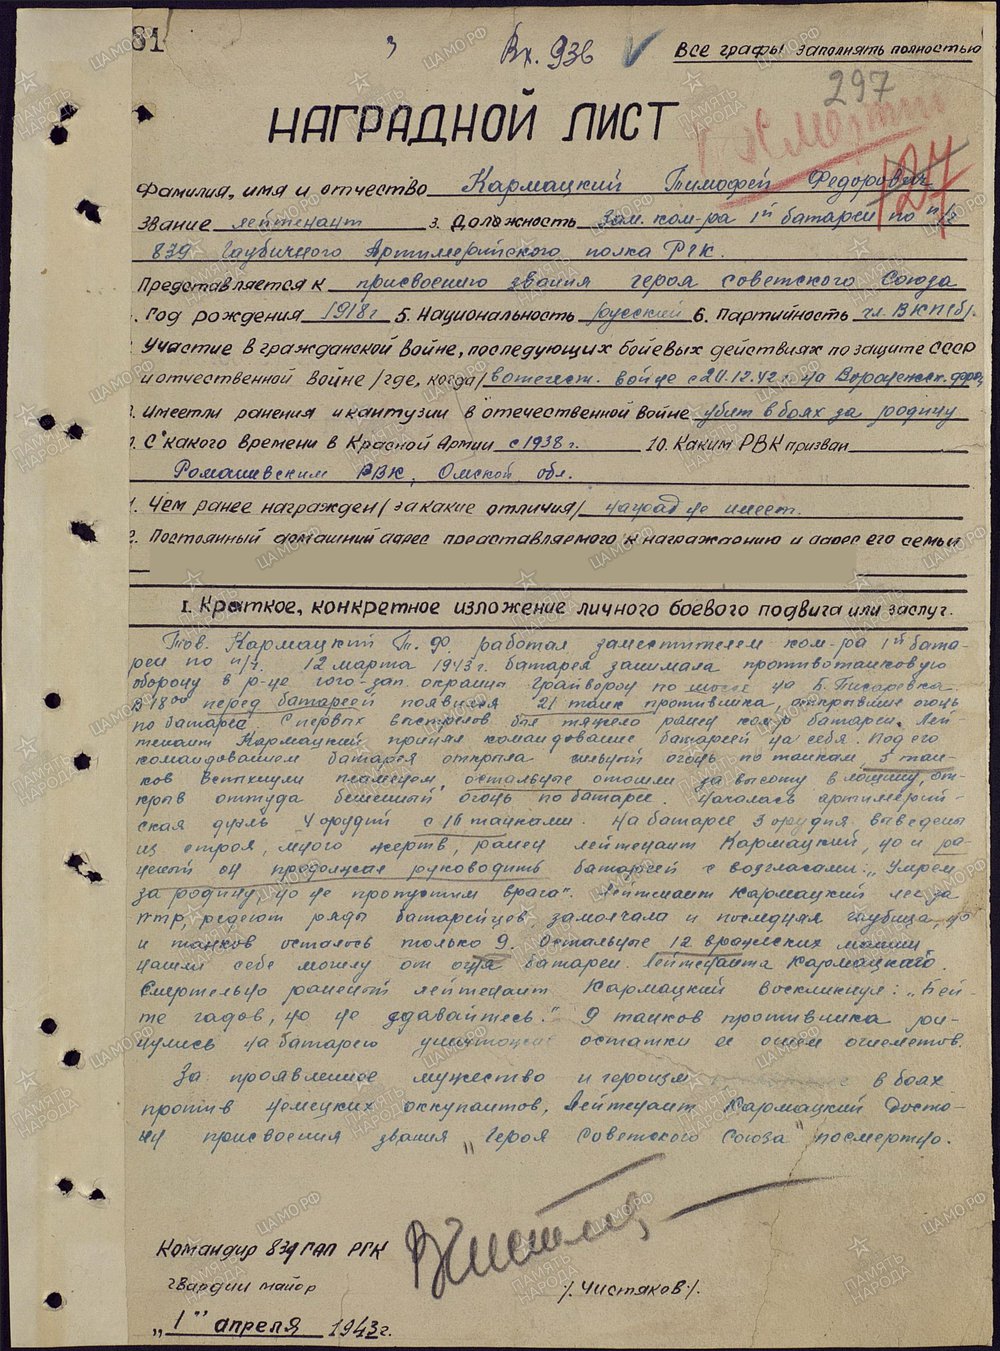 81
3
Вх. 936
Все графы заполнять полностью
297
НАГРАДНОЙ ЛИСТ
127
Фамилия, имя и отчество Кармацкий Тимофей Федорович
Звание лейтенант 3. Должность зам. ком-ра 1й батареи по п/ч
839 Гаубичного Артиллерийского полка РГК.
Представляется к присвоению звания героя советского Союза
. Год рождения 1918 г 5. Национальность русский 6. Партийность чл. ВКП(б).
Участие в гражданской войне, последующих боевых действиях по защите СССР
и отечественной войне /где, когда/ в отечест. войне с 20.12.42 г на Воронежск. фрон.
. Имеет ли ранения и кантузии в отечественной войне убит в боях за родину
. С какого времени в Красной Армии с 1938 г. 10. Каким РВК призван
Ромашевским РВК, Омской обл.
1. Чем ранее награжден / за какие отличия/ наград не имеет.
2. Постоянный домашний адрес представляемого к награждению и адрес его семьи
I. Краткое, конкретное изложение личного боевого подвига или заслуг.
Тов. Кармацкий Т. Ф. работал заместителем ком-ра 1й бата-
реи по п/ч. 12 марта 1943 г. батарея занимала противотанковую
оборону в р-не юго-зап. окраина Грайворон по шоссе на Б. Писаревка.
В 18 00 перед батареей появился 21 танк противника, открывшие огонь
по батарее. С первых выстрелов был тяжело ранен ком-р батареи. Лей-
тенант Кармацкий принял командование батареей на себя. Под его
командованием батарея открыла сильный огонь по танкам. 5 тан-
ков вспыхнули пламенем, остальные отошли за высоту в лощину, от-
крыв оттуда бешенный огонь по батарее. Началась артиллерий-
ская дуэль 4 орудий с 16 танками. На батарее 3 орудия выведены
из строя, много жертв, ранен лейтенант Кармацкий, но и ра-
неный он продолжал руководить батареей с возгласами: „Умрем
за родину, но не пропустим врага". Лейтенант Кармацкий лег за
ПТР, редеют ряды батарейцев, замолчала и последняя гаубица, но
и танков осталось только 9. Остальные 12 вражеских машин
нашли себе могилу от огня батареи Лейтенанта Кармацкого.
Смертельно раненый лейтенант Кармацкий воскликнул: „Бей-
те гадов, но не сдавайтесь." 9 танков противника ри-
нулись на батарею уничтожив остатки ее огнем огнеметов.
За проявленное мужество и героизм в боях
против немецких оккупантов, Лейтенант Кармацкий досто-
ин присвоения звания „Героя Советского Союза" посмертно.
Командир 839 ГАП РГК
гвардии майор /. Чистяков /.
„1" апреля 1943 г.